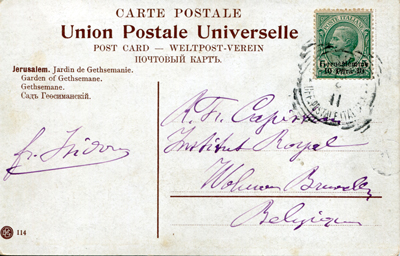 CARTE POSTALE
Union Postale Universelle
POST CARD — WELTPOST-VEREIN
ПОЧТОВЫЙ КАРТЪ.
Jerusalem. Jardin de Gethsemanie.
Garden of Gethsemane.
Gethsemane.
Садъ Геѳсиманскій.
POSTE ITALIANE
Gerusalemme
10 Para 10
11
R. Fr.
Institut Royal
Woluwe Bruxelles
Belgique
fr. Isidore
114